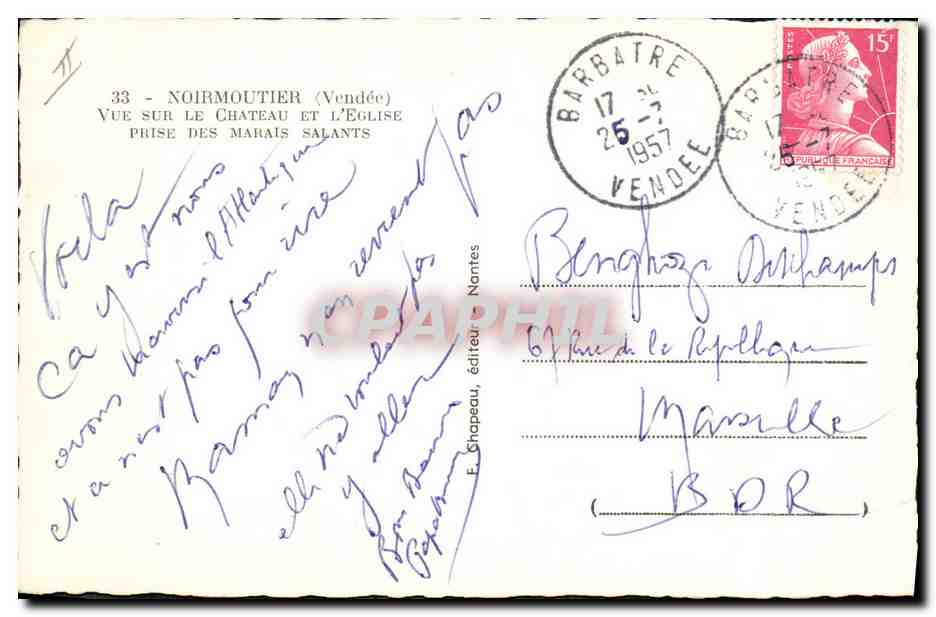 II
33 - NOIRMOUTIER (Vendée)
VUE SUR LE CHATEAU ET L'EGLISE
PRISE DES MARAIS SALANTS
Voila
Ca y est nous
avons l'Atlantique
et ce n'est pas pour rire
non revient pas
elle ne voulait pas
y aller
Bons
F. Chapeau, éditeur - Nantes
BARBATRE
17
25-7
1957
VENDEE
POSTES
15F
REPUBLIQUE FRANÇAISE
BARBATRE
17
VENDEE
Benghozi Deschamps
67 Rue de la République
Marseille
(BDR)
CPAPHIL